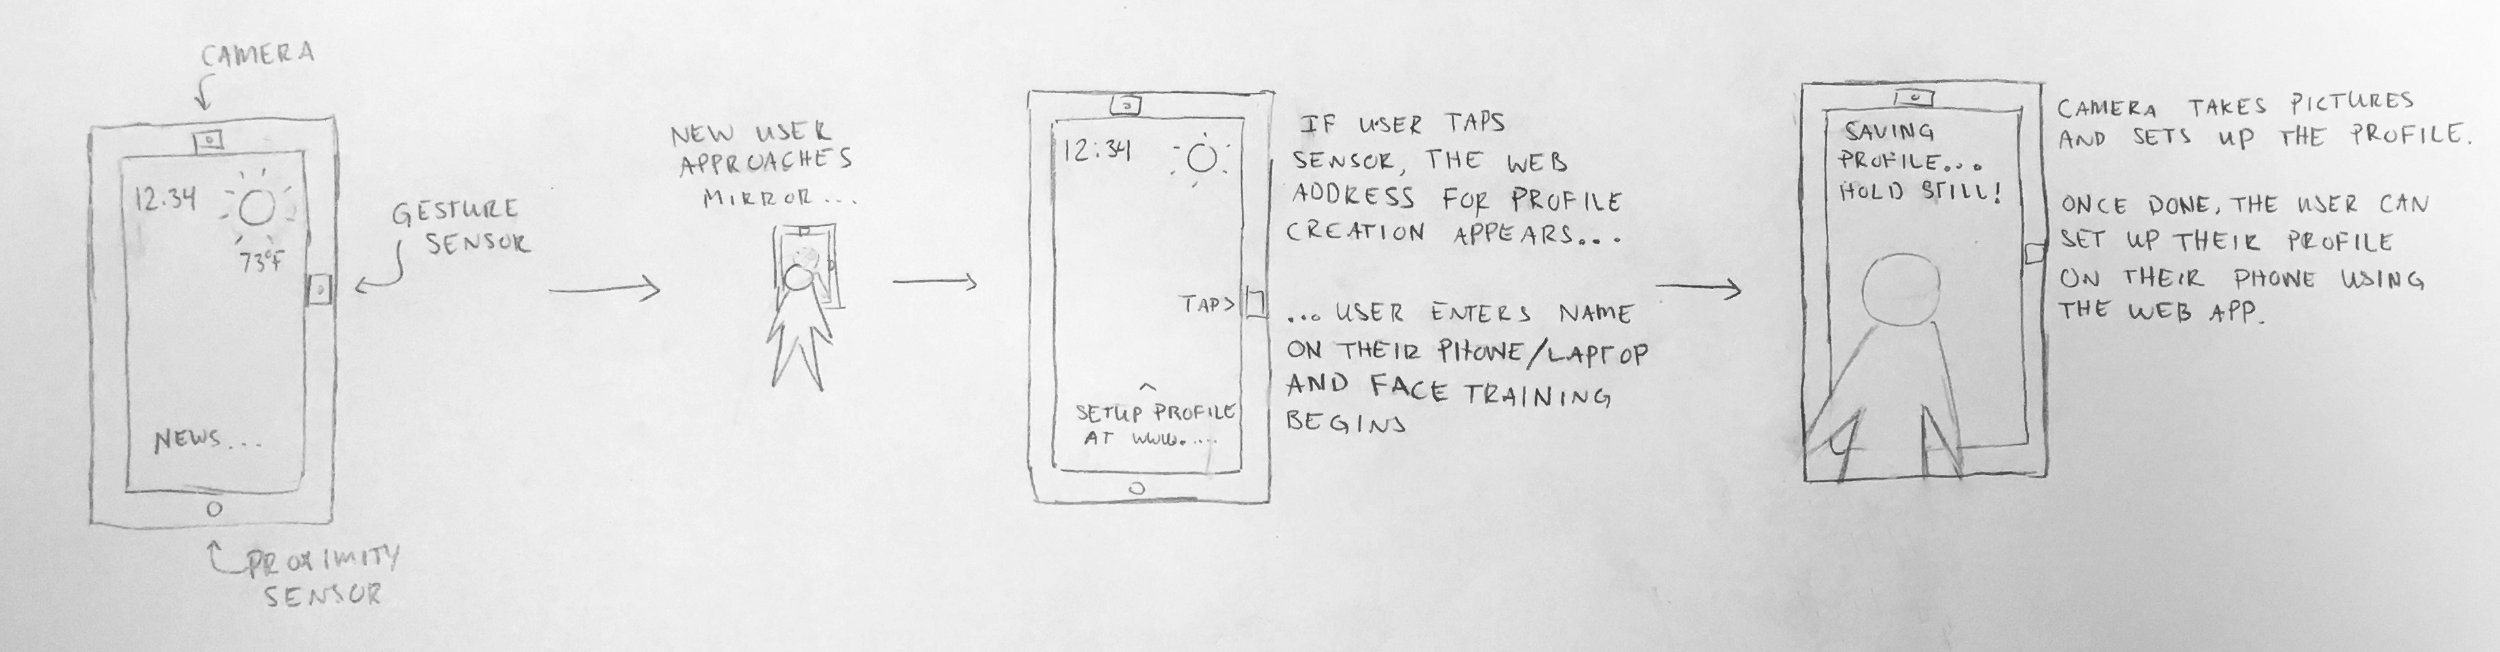 CAMERA
12.34
73°F
GESTURE
SENSOR
NEWS...
PROXIMITY
SENSOR
NEW USER
APPROACHES
MIRROR...
12:34
TAP>
SETUP PROFILE
AT WWW.....
IF USER TAPS
SENSOR, THE WEB
ADDRESS FOR PROFILE
CREATION APPEARS...
... USER ENTERS NAME
ON THEIR PHONE/LAPTOP
AND FACE TRAINING
BEGINS
SAVING
PROFILE...
HOLD STILL!
CAMERA TAKES PICTURES
AND SETS UP THE PROFILE.
ONCE DONE, THE USER CAN
SET UP THEIR PROFILE
ON THEIR PHONE USING
THE WEB APP.